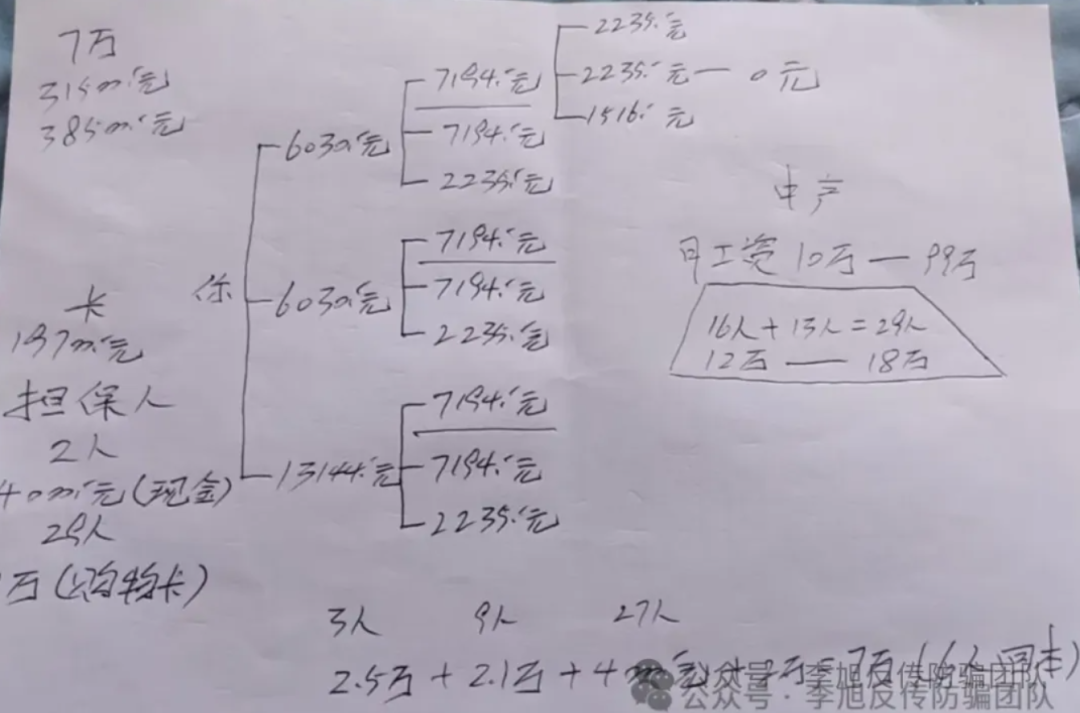 7万
315m元
385m元
卡
197m元
担保人
2人
40m元(现金)
29人
万(购物卡)
你
6030元
7194元
7194元
2235元
2235元
2235元 — 0元
1516元
6030元
7194元
7194元
2235元
13144元
7194元
7194元
2235元
中产
月工资10万—99万
16人+13人=29人
12万 — 18万
3人 9人 27人
2.5万+2.1万+4
公众号·李旭反传防骗团队
公众号·李旭反传防骗团队